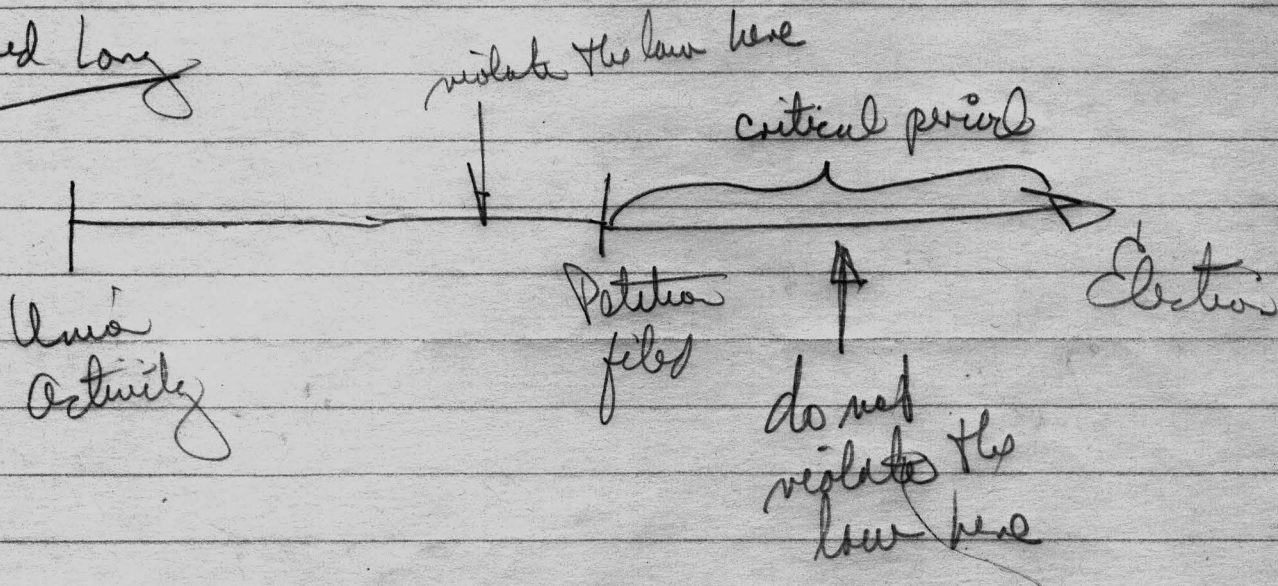 ed Long
violate the law here
critical period
Union
Activity
Petition
filed
Election
do not
violate the
law here